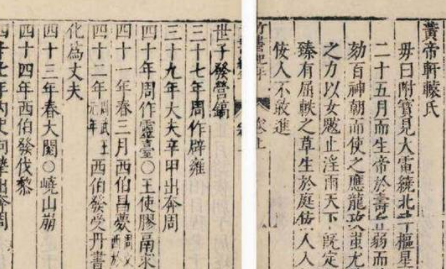 黃帝軒轅氏
母曰附寶見大電繞北斗樞星
二十五月而生帝於壽丘弱而
劾百神朝而使之應龍攻蚩尤
之力以女魃止淫雨天下既定
臻有屈軼之草生於庭佞人人
佞人不敢進
竹書紀年 卷上
世子發營鎬
三十七年周作辟雍
三十九年大夫辛甲出奔周
四十年周作靈臺○王使膠鬲求
四十一年春三月西伯昌薨
四十二年周武王元年西伯發受丹書
化為丈夫
四十三年春大閱○嶢山崩
四十四年西伯發伐黎
四十七年內史向摯出奔周